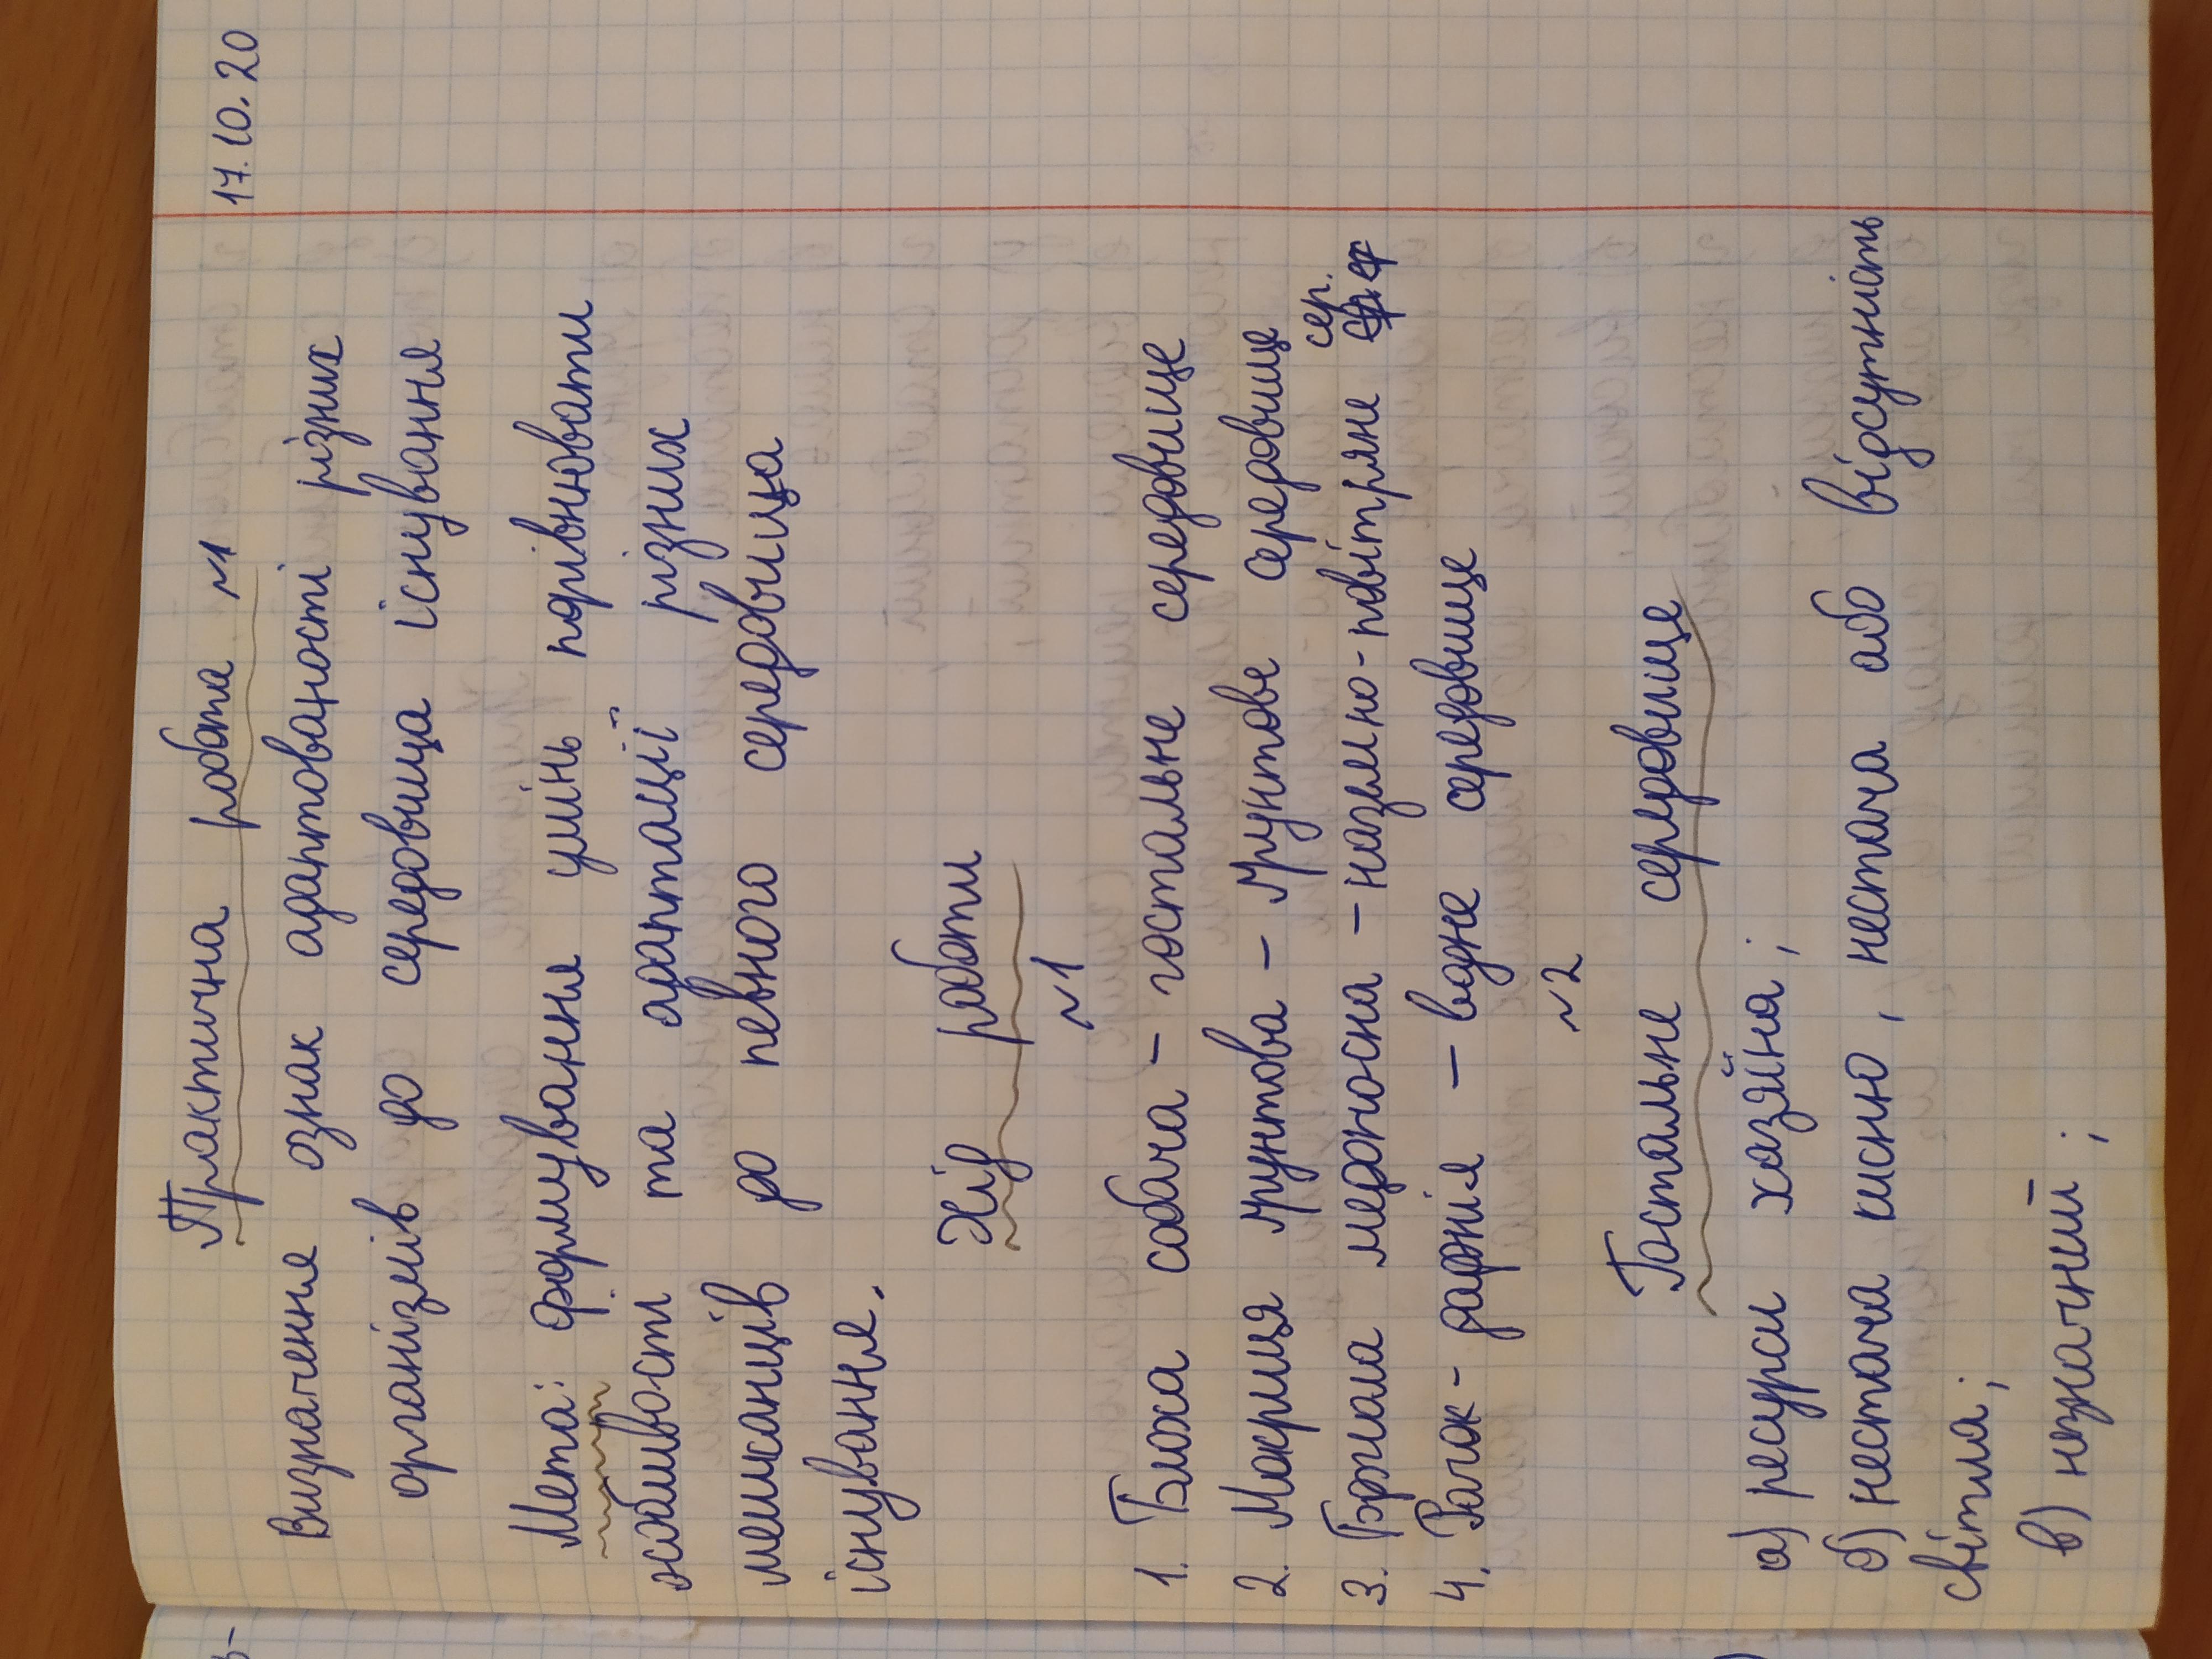 17.10.20
Практична робота №1
Визначення ознак адаптованості різних
організмів до середовища існування
Мета: формування умінь порівнювати
жабливості та адаптації різних
мешканців до певного середовища
існування.
Хід роботи
№1
1. Блоха собача – гостальне середовище
2. Мокриця ґрунтова – ґрунтове середовище
3. Бджола медоносна – наземно-повітряне сер.
4. Рачок - дафнія – водне середовище
№2
Гостальне середовище
а) ресурси хазяїна;
б) нестача кисню, нестача або відсутність
світла;
в) незначний;